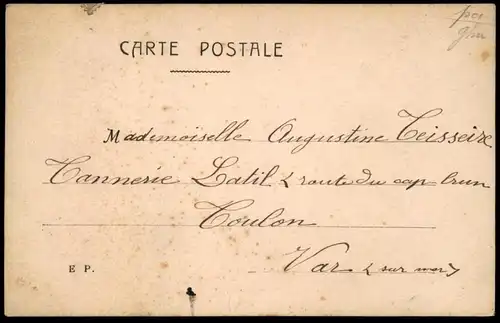 CARTE POSTALE
Mademoiselle Augustine Teisseire
Tannerie Latil < route du cap brun
Toulon
Var < sur mer >
E P.